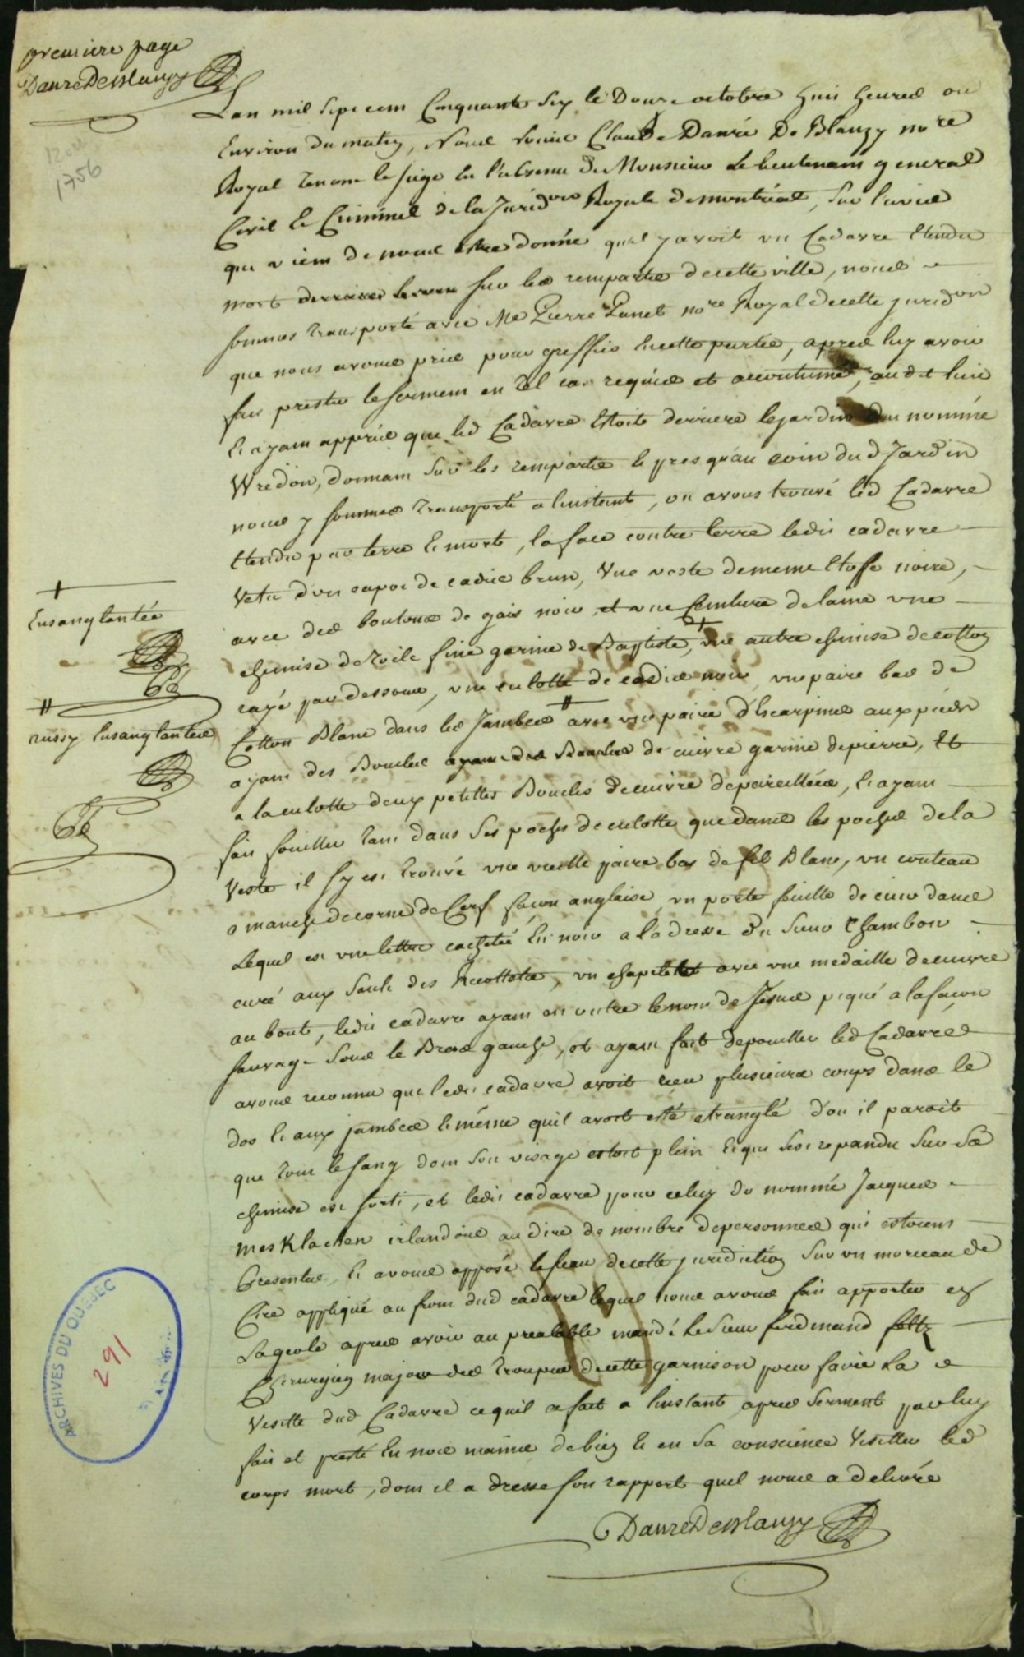 premiere page
DanreDeblanzy
12 oct
1756
Lan mil sept cent Cinquante Six le Douze octobre huit heures ou
Environ du matin, Nous Soussigné Claude Danré De Blanzy no.re
Royal tenant le siege En l'absence de Monsieur Le lieutenant general
Civil et Criminel de la Jurid.on Royale de montréal, Sur l'avis
qui vient de nous estre donné quil y avoit un Cadavre Etendu
mort derriere sur les remparts de cette ville, nous
sommes transporté avec Me Pierre Panet no.re Royal de cette jurid.on
que nous avons pris pour greffier En cette partie, apres luy avoir
fait prester le serment en tel cas requis et accoutumé, audit lieu
Et ayant appris que led Cadavre Etoit derriere le jardin du nommé
Wredon, donnant Sur les remparts Et presquau coin dud Jardin
nous y sommes transporté a linstant, ou avons trouvé led Cadavre
Etendu par terre Et mort, la face contre terre ledit cadavre
Vetu d'un capot de cadis brun, Une veste de meme Etoffe noire,
avec des boutons de gais noir et une Ceinture de laine une
chemise de toile fine garnie de Baptiste, + une autre chemise de cotton
rayé par dessous, une culotte de cadis noir, une paire bas de
Cotton Blanc dans les Jambes # avec une paire d'Escarpins aux pieds
ayant des Boucles de cuivre garnie de pierre, Et
a la culotte deux petittes Boucles de cuivre depareillées, Et ayant
fait fouiller tant dans Ses poches de culotte que dans les poches de la
Veste il s'y est trouvé une vieille paire bas de fil Blanc, un couteau
a manche de corne de Cerf façon anglaise, un porte feuille de cuir dans
Lequel est une lettre cachetée En noir a ladresse du Sieur Chambon
curé aux Sault des Recollets, un chapelet avec une medaille de cuivre
au bout, ledit cadavre ayant en outre le nom de Jesus piqué a la façon
sauvage Sous le Bras gauche, et ayant fait depouiller led Cadavre
avons reconnu que ledit cadavre avoit reçu plusieurs coups dans le
dos Et aux jambes Et même quil avoit esté etranglé d'ou il paroit
que tout le sang dont Son visage estoit plein Et qui sest repandu Sur Sa
chemise est sorti, et ledit cadavre pour celuy du nommé Jacques
MacKlachen irlandois au dire de nombre de personnes qui estoient
Presentes, Et avons apposé le sceau de cette juridiction Sur un morceau de
Cire appliqué au front dud cadavre lequel nous avons fait apporter es
La geole apres avoir au prealable mandé Le Sieur ferdinand feltz
Chirurgien major des troupes de cette garnison pour faire La
Visitte dud Cadavre ce quil a fait a linstant apres Serment par luy
fait et presté En nos mains de bien Et en Sa conscience Visitter led
corps mort, dont il a dressé son rapport quil nous a delivré
DanreDeblanzy
+
Ensanglantée
#
aussy Ensanglantées
ARCHIVES DU QUEBEC
291